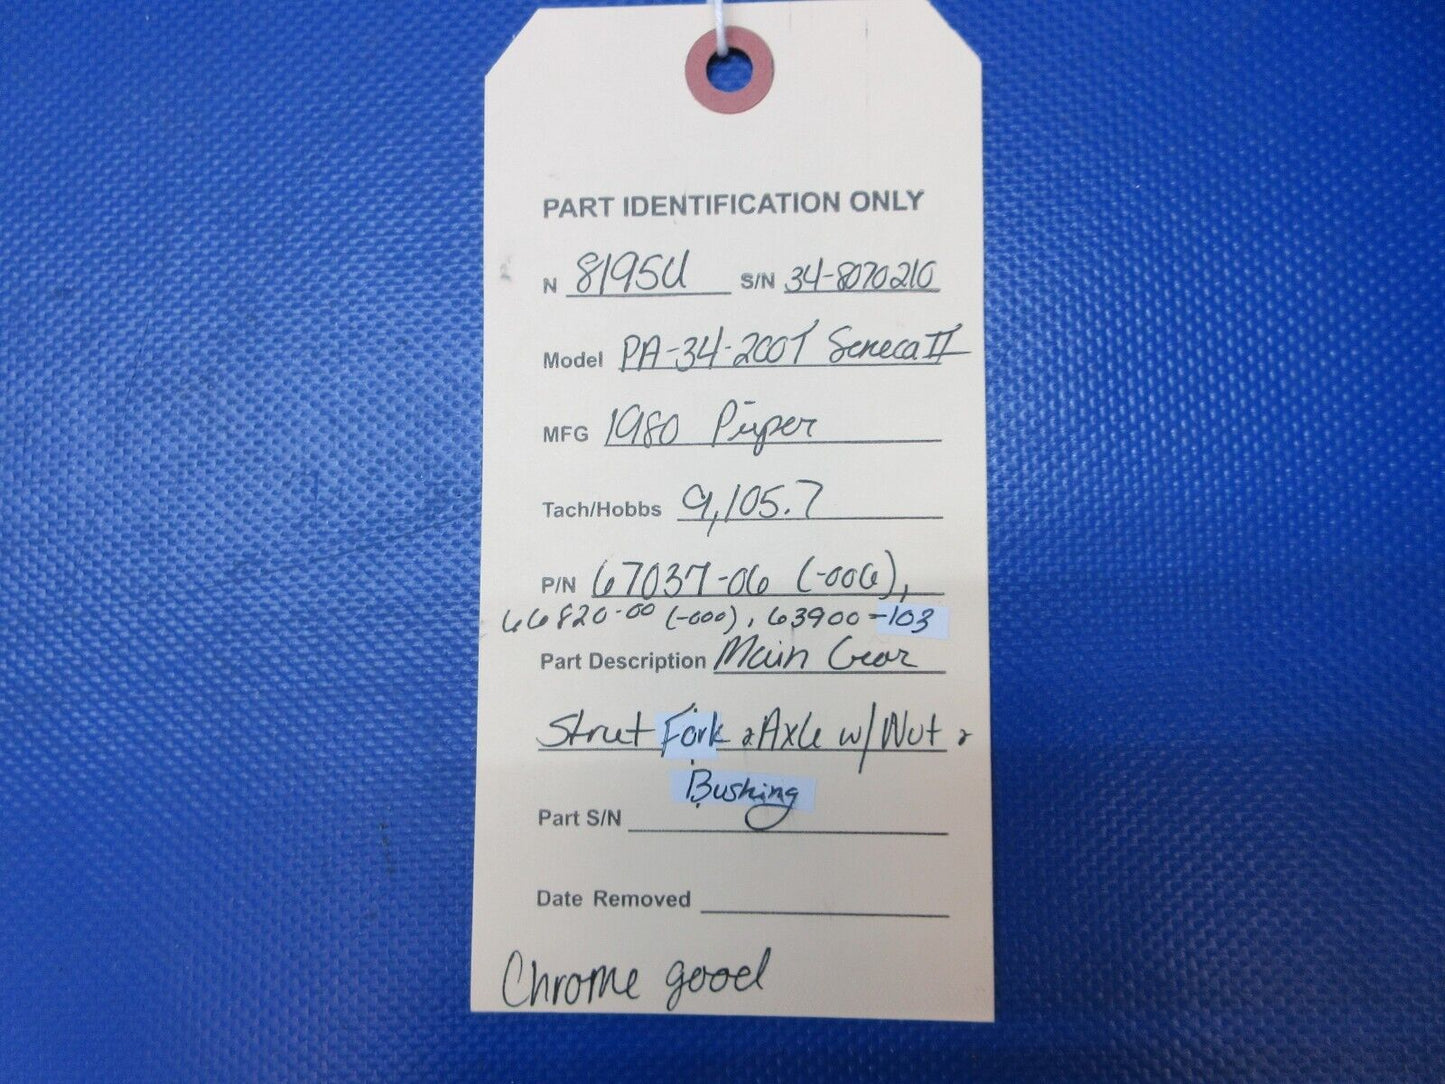 PART IDENTIFICATION ONLY
N 8195U S/N 34-8070210
Model PA-34-200T Seneca II
MFG 1980 Piper
Tach/Hobbs 9,105.7
P/N 67037-06 (-006),
66820-00 (-000), 63900-103
Part Description Main Gear
Strut Fork & Axle w/Nut &
Bushing
Part S/N
Date Removed
Chrome good